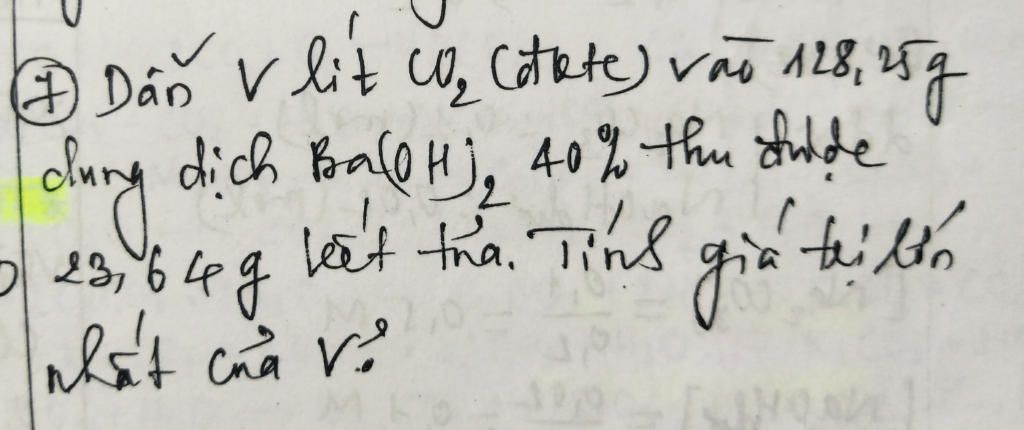 7 Dẫn V lít CO2 (đktc) vào 128,25g
dung dịch Ba(OH)2 40% thu được
23,64g kết tủa. Tính giá trị lớn
nhất của V?